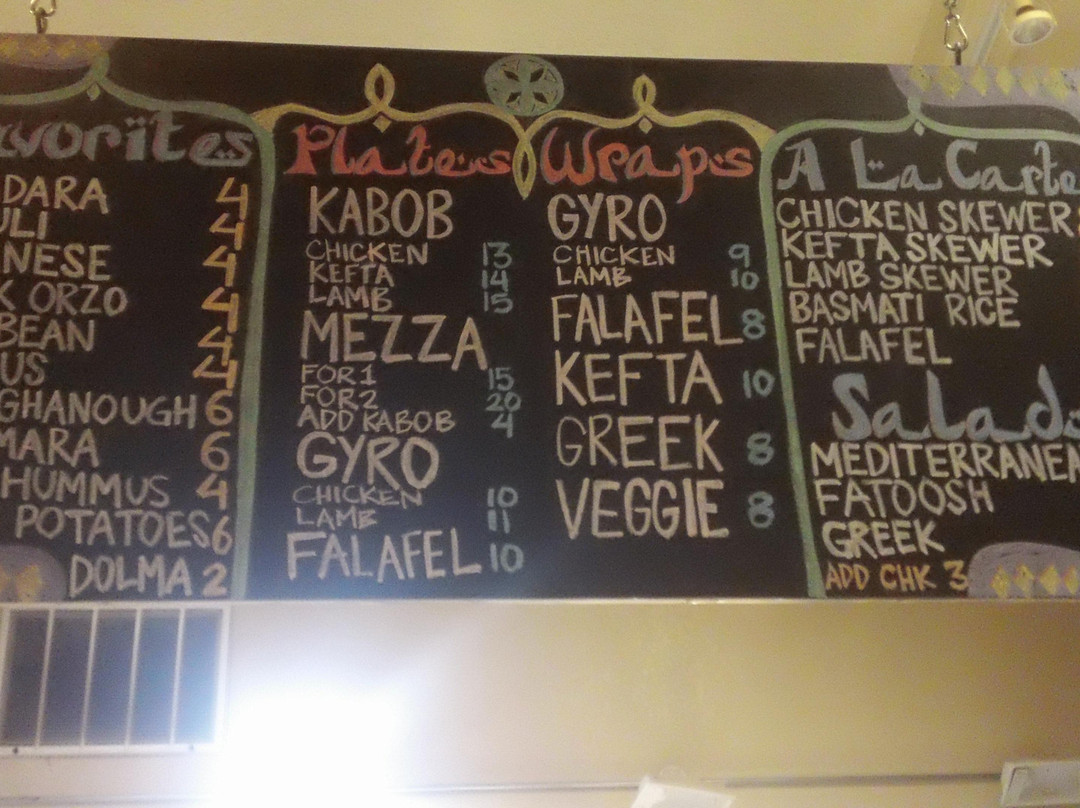 avorites
DARA 4
ULI 4
NESE 4
K ORZO 4
BEAN 4
US 4
GHANOUGH 6
MARA 6
HUMMUS 4
POTATOES 6
DOLMA 2
Plates
KABOB
CHICKEN 13
KEFTA 14
LAMB 15
MEZZA
FOR 1 15
FOR 2 20
ADD KABOB 4
GYRO
CHICKEN 10
LAMB 11
FALAFEL 10
Wraps
GYRO
CHICKEN 9
LAMB 10
FALAFEL 8
KEFTA 10
GREEK 8
VEGGIE 8
A La Carte
CHICKEN SKEWER
KEFTA SKEWER
LAMB SKEWER
BASMATI RICE
FALAFEL
Salads
MEDITERRANEA
FATOOSH
GREEK
ADD CHK 3